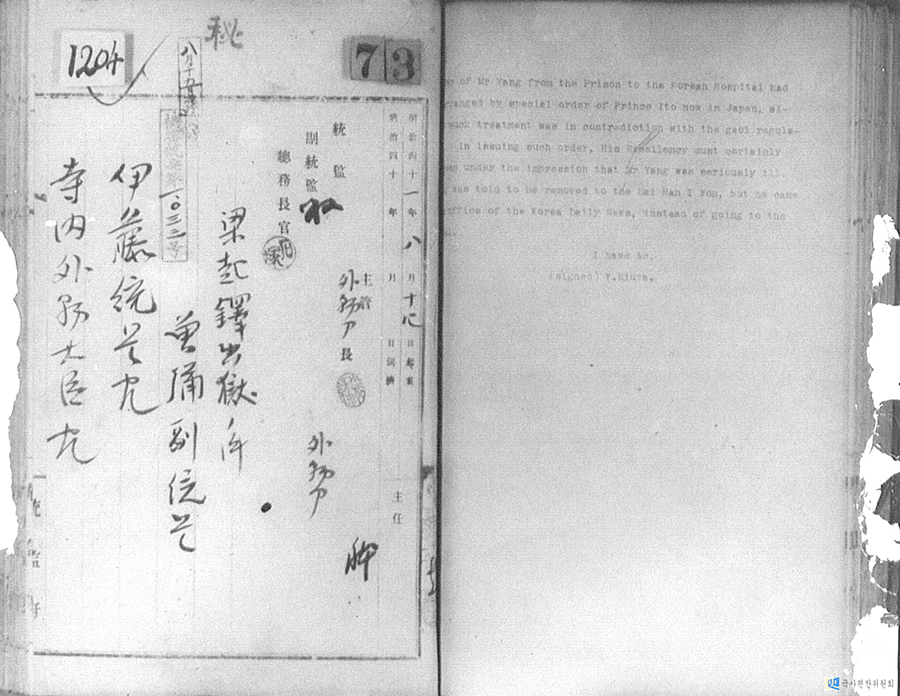 秘
1204
73
八月十九日
一〇三三号
明治四十一年八月十九日起案
明治四十 年 月 日 済
主任
統監
副統監
総務長官
主管
外務部長
外務部
梁起鐸出獄ノ件
曽禰副統監
伊藤統監宛
寺内外務大臣宛
統監府
of Mr Yang from the Prison to the Korean Hospital had
by special order of Prince Ito now in Japan, al-
such treatment was in contradiction with the gaol regula-
in issuing such order, His Excellency must certainly
under the impression that Mr Yang was seriously ill.
was told to be removed to the Dai Han I Won, but he came
office of the Korea Daily News, instead of going to the
I have &c.
(signed) Y.Miura.
국사편찬위원회